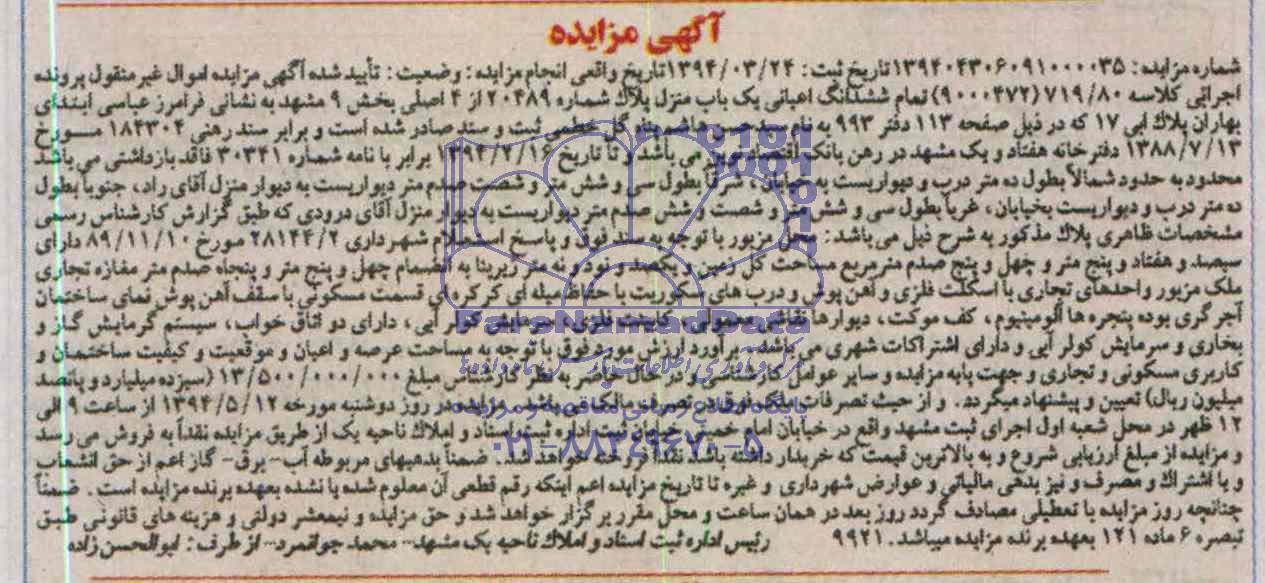 آگهی مزایده
شماره مزایده: ۱۳۹۴۰۴۳۰۶۰۹۱۰۰۰۰۳۵ تاریخ ثبت: ۱۳۹۴/۰۳/۲۴ تاریخ واقعی انجام مزایده: وضعیت: تأیید شده آگهی مزایده اموال غیر منقول پرونده
اجرائی کلاسه ۷۱۹/۸۰ (۹۰۰۰۴۷۲) تمام ششدانگ اعیانی یک باب منزل پلاک شماره ۲۰۴۸۹ از ۴ اصلی بخش ۹ مشهد به نشانی فرامرز عباسی ابتدای
بهاران پلاک ابی ۱۷ که در ذیل صفحه ۱۱۳ دفتر ۹۹۳ به نام گل خطمی ثبت و سند صادر شده است و برابر سند رهنی ۱۸۴۳۰۴ مورخ
۱۳۸۸/۷/۱۳ دفترخانه هفتاد و یک مشهد در رهن بانک می باشد و تا تاریخ ۱۳۹۴/۲/۱۶ برابر با نامه شماره ۳۰۳۴۱ فاقد بازداشتی می باشد
محدود به حدود شمالاً بطول ده متر درب و دیواریست به خیابان، شرقاً بطول سی و شش متر و شصت صدم متر دیواریست به دیوار منزل آقای راد، جنوباً بطول
ده متر درب و دیواریست بخیابان، غرباً بطول سی و شش متر و شصت و شش صدم متر دیواریست به دیوار منزل آقای درودی که طبق گزارش کارشناس رسمی
مشخصات ظاهری پلاک مذکور به شرح ذیل می باشد: محل مزبور با توجه به سند فوق و پاسخ استعلام شهرداری ۲۸۱۴۴/۲ مورخ ۸۹/۱۱/۱۰ دارای
سیصد و هفتاد و پنج متر و چهل و پنج صدم متر مربع مساحت کل زمین و یکصد و نود و نه متر زیربنا به انضمام چهل و پنج متر و پنجاه صدم متر مغازه تجاری
ملک مزبور واحدهای تجاری با اسکلت فلزی و آهن پوش و درب های سکوریت با حفاظ میله ای کرکره ای قسمت مسکونی با سقف آهن پوش نمای ساختمان
آجر گری بوده پنجره ها آلومینیوم، کف موکت، دیوارها نقاشی معمولی، کابینت فلزی، سرمایش کولر آبی، دارای دو اتاق خواب، سیستم گرمایش گاز و
بخاری و سرمایش کولر آبی و دارای اشتراکات شهری می باشد. برآورد ارزش مورد فوق با توجه به مساحت عرصه و اعیان و موقعیت و کیفیت ساختمان و
کاربری مسکونی و تجاری و جهت پایه مزایده و سایر عوامل کارشناسی و در حال حاضر به نظر کارشناس مبلغ ۱۳/۵۰۰/۰۰۰/۰۰۰ (سیزده میلیارد و پانصد
میلیون ریال) تعیین و پیشنهاد میگردد. و از حیث تصرفات فوق در تصرف مالک می باشد. مزایده در روز دوشنبه مورخه ۱۳۹۴/۵/۱۲ از ساعت ۹ الی
۱۲ ظهر در محل شعبه اول اجرای ثبت مشهد واقع در خیابان امام خمینی خیابان ثبت اداره ثبت اسناد و املاک ناحیه یک از طریق مزایده نقداً به فروش می رسد
و مزایده از مبلغ ارزیابی شروع و به بالاترین قیمت که خریدار داشته باشد نقداً فروخته خواهد شد. ضمناً بدهیهای مربوطه آب- برق- گاز اعم از حق انشعاب
و یا اشتراک و مصرف و نیز بدهی مالیاتی و عوارض شهرداری و غیره تا تاریخ مزایده اعم اینکه رقم قطعی آن معلوم شده یا نشده بعهده برنده مزایده است. ضمناً
چنانچه روز مزایده با تعطیلی مصادف گردد روز بعد در همان ساعت و محل مقرر برگزار خواهد شد و حق مزایده و نیمعشر دولتی و هزینه های قانونی طبق
تبصره ۶ ماده ۱۲۱ بعهده برنده مزایده میباشد. ۹۹۲۱ رئیس اداره ثبت اسناد و املاک ناحیه یک مشهد- محمد جوانمرد- از طرف: ابوالحسن زاده
ParsNamadData
۰۲۱-۸۸۳۴۹۶۷۰-۵